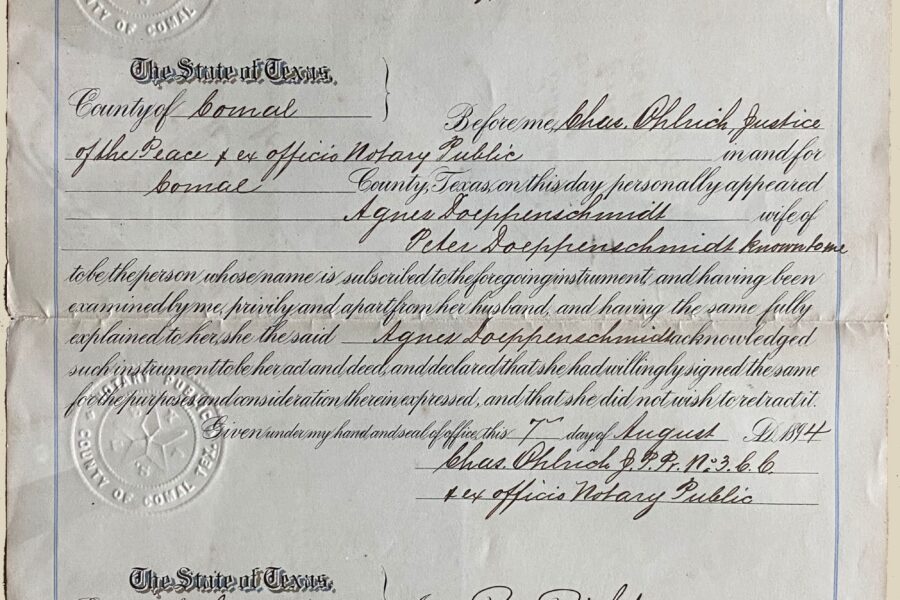 COUNTY OF COMAL
The State of Texas.
County of Comal
Before me, Chas. Ohlrich, Justice
of the Peace & ex officio Notary Public in and for
Comal County, Texas, on this day personally appeared
Agnes Doeppenschmidt wife of
Peter Doeppenschmidt known to me
to be the person whose name is subscribed to the foregoing instrument, and having been
examined by me, privily and apart from her husband, and having the same fully
explained to her, she the said Agnes Doeppenschmidt acknowledged
such instrument to be her act and deed, and declared that she had willingly signed the same
for the purposes and consideration therein expressed, and that she did not wish to retract it.
NOTARY PUBLIC
COUNTY OF COMAL TEX
Given under my hand and seal of office, this 7th day of August A.D. 1894
Chas. Ohlrich J.P. Pr. No: 3. C. C.
& ex officio Notary Public
The State of Texas.